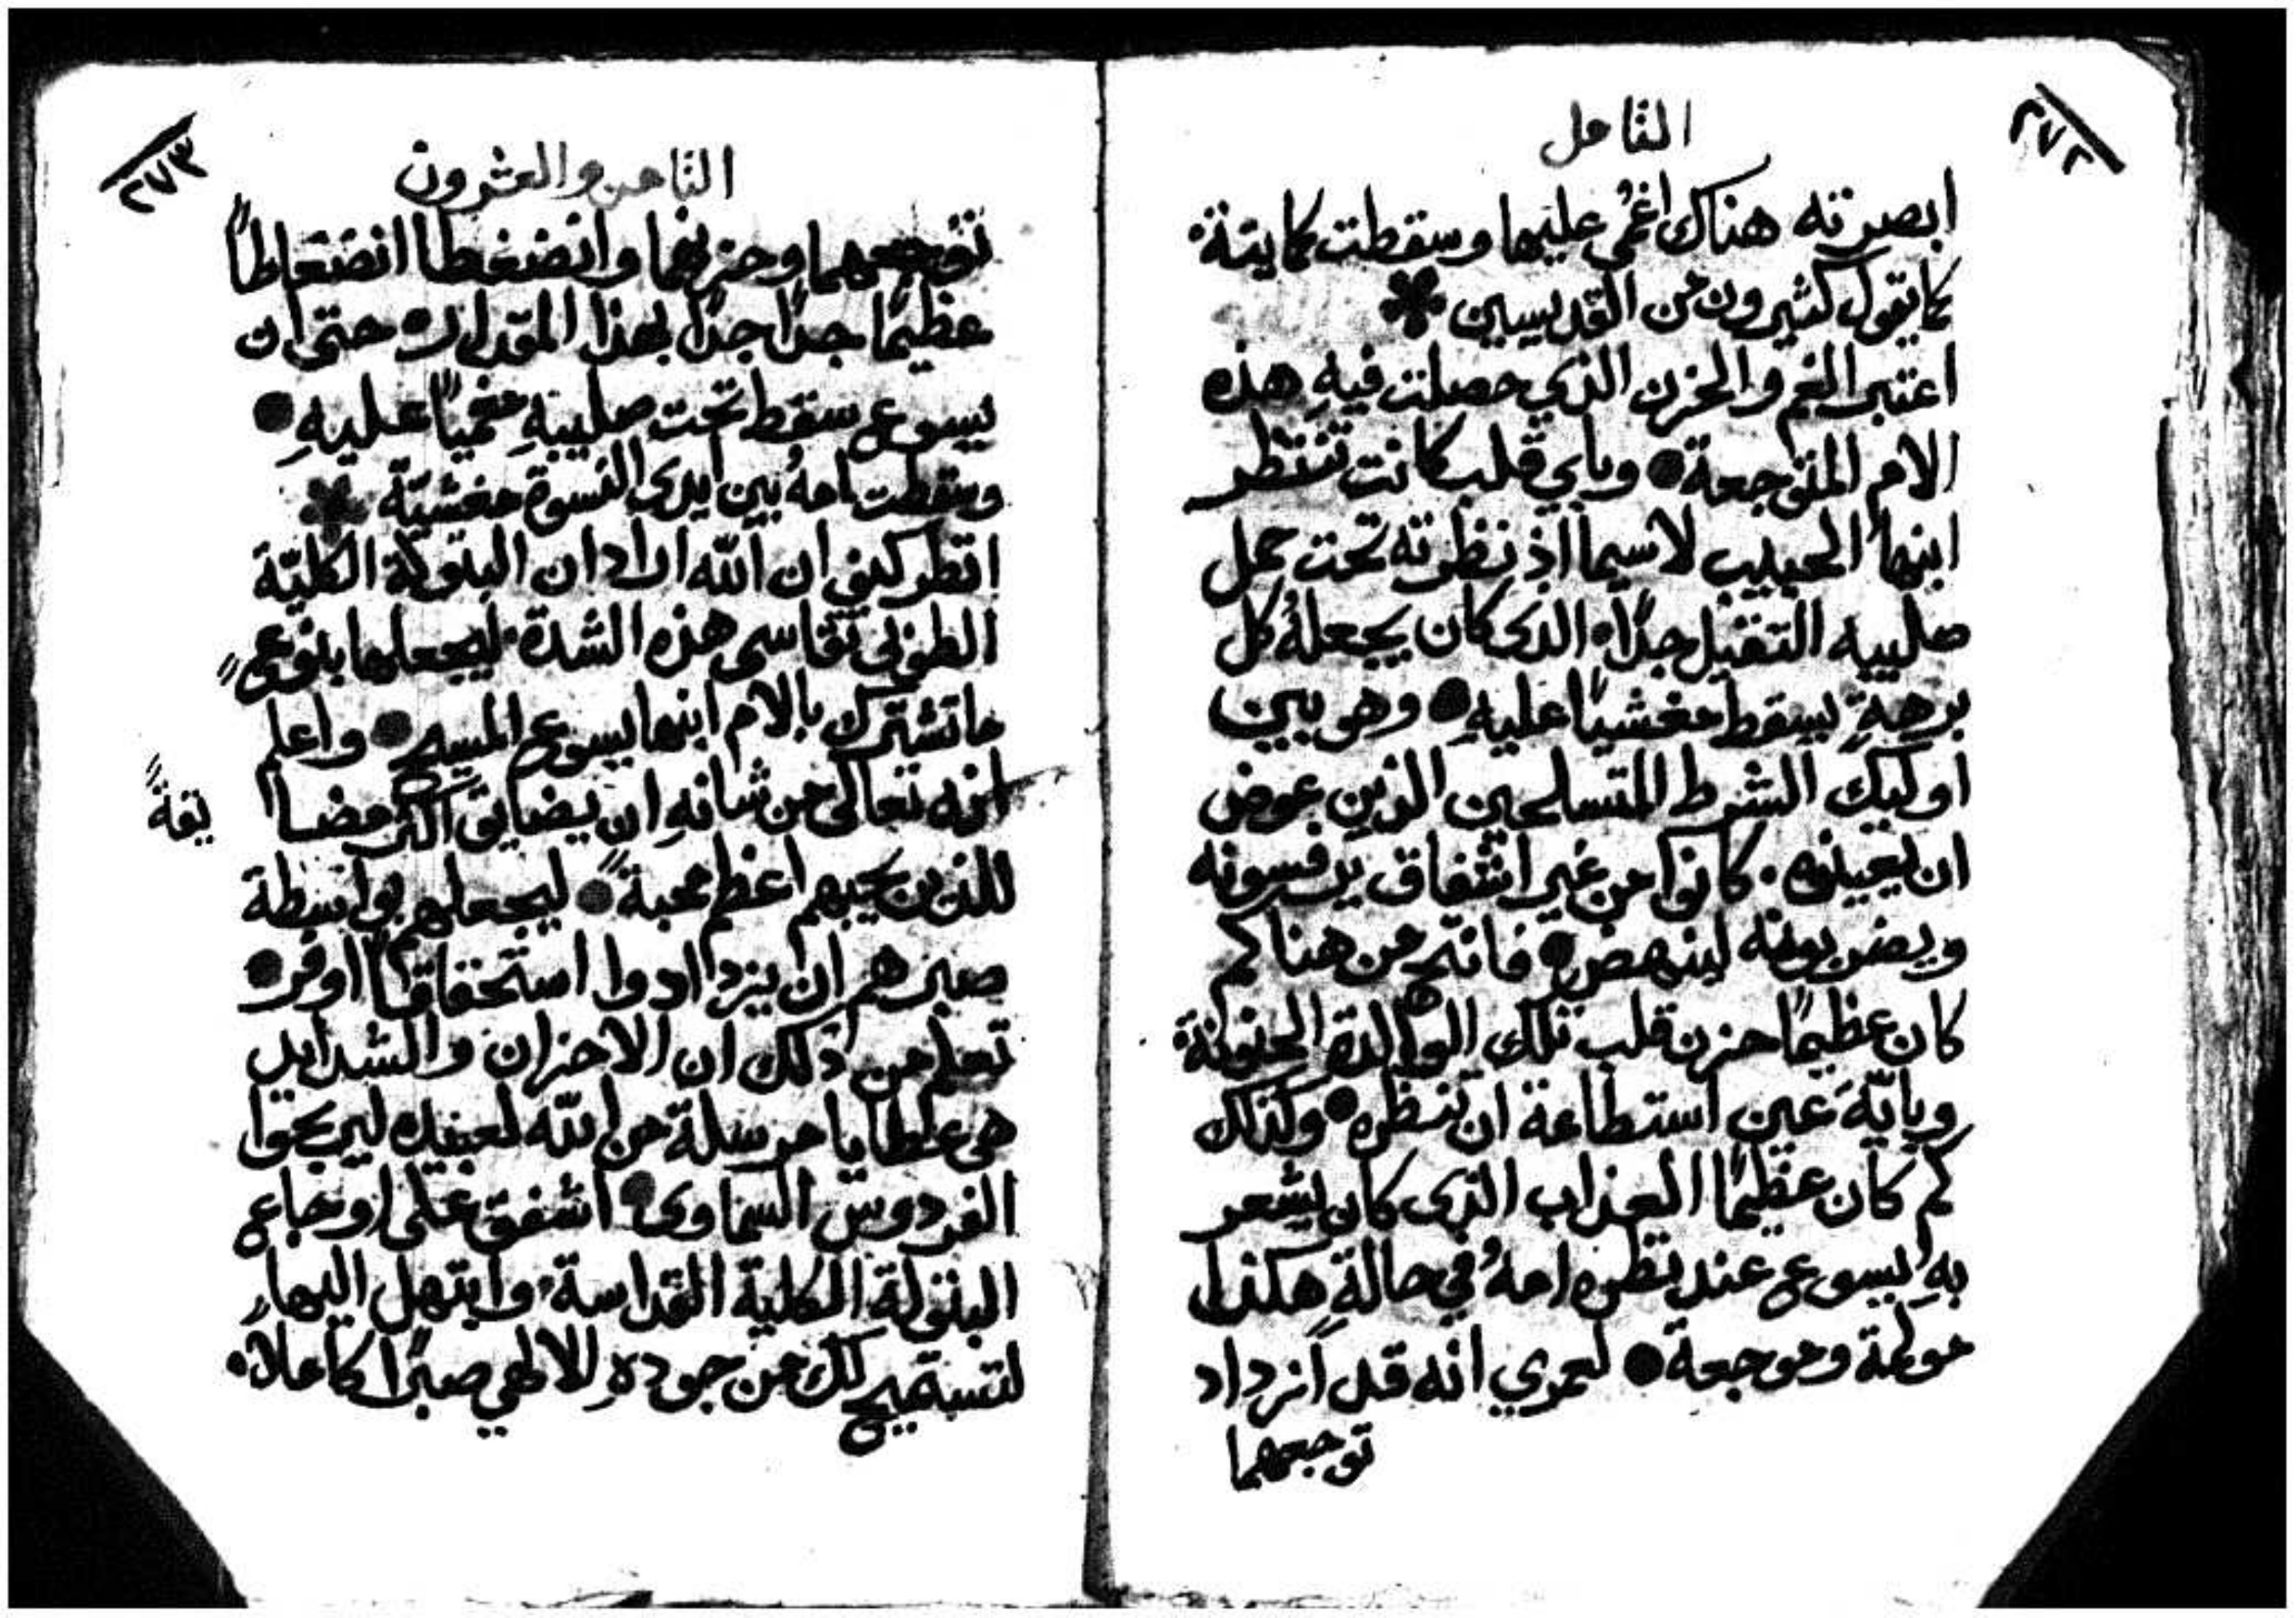 التامل
٢٧٢
ابصرته هناك اغمي عليها وسقطت كمايتة.
كما يقول كثيرون من القديسين
اعتبر الغم والحزن الذي حصلت فيهِ هذه
الام المتوجعة ● وباي قلب كانت تنتظر
ابنها الحبيب لاسيما اذ نظرته تحت حمل
صليبه الثقيل جدًا. الذى كان يجعلهُ كل
برهةٍ يسقط مغشيًا عليهِ ● وهو بين
اوليك الشرط المتسلحين الذين عوض
ان يعينوه. كانوا من غير اشفاق يرفسونه
ويضربونه لينهض ● فانتج من هنا كم
كان عظيمًا حزن قلب تلك الوالدة الحنونة.
وبايّة عين استطاعة ان تنظره ● وكذلك
كم كان عظيمًا العذاب الذى كان يشعر
بهِ يسوع عند نظره امهُ في حالةٍ هكذا
مولمة وموجعة ● لعمري انه قد ازداد
توجعهما
الثامن والعشرون
٢٧٣
توجعهما وحزنهما وانضغطا انضغاطاً
عظيمًا جدًا جدًا بهذا المقدار ● حتى ان
يسوع سقط تحت صليبهِ مغميًا عليهِ ●
وسقطت امهُ بين ايدى النسوة مغشيّة
انظر كيف ان الله اراد ان البتولة الكليّة
الطوبى تقاسى هذه الشدة. ليجعلها بنوعٍ
ما تشترك بالام ابنها يسوع المسيح ● واعلم
انه تعالى من شانهِ ان يضايق اكثر مضا
يقةً
للذين يحبهم اعظم محبةً ● ليجعلهم بواسطة
صبرهم ان يزدادوا استحقاقًا اوفر ●
تعلم من ذلك ان الاحزان والشدايد
هى عطايا مرسلة من الله لعبيده ليربحوا
الفردوس السماوى ● اشفق على اوجاع
البتولة الكلية القداسة. وابتهل اليها
لتستميح لك من جودهِ الالهي صبرًا كاملاً.